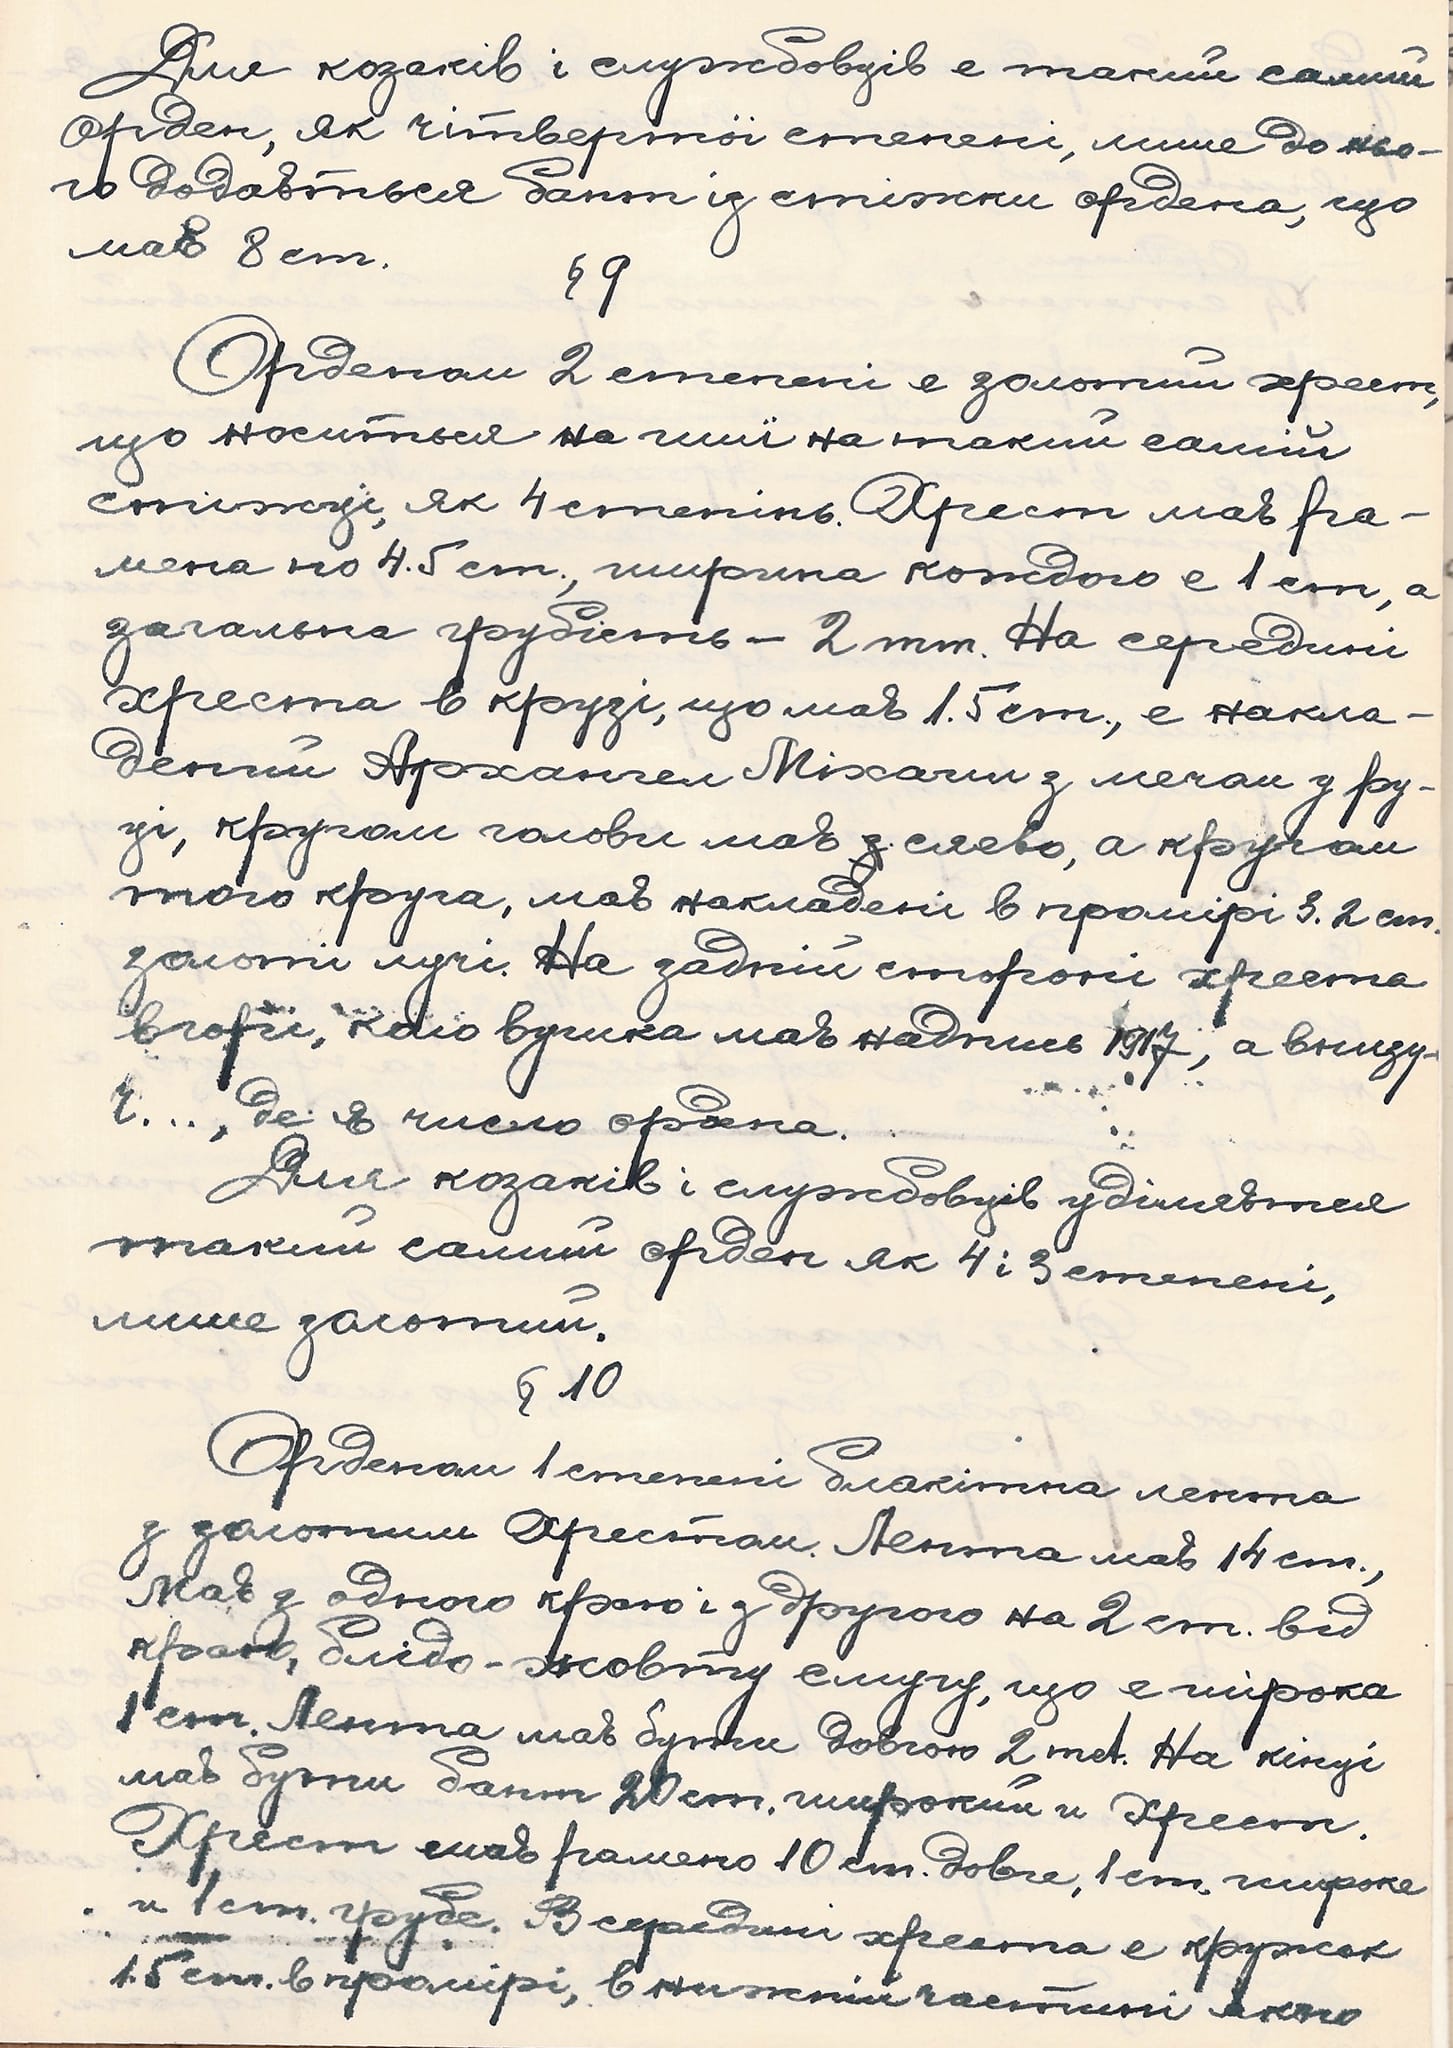 Для козаків і службовців е такий самий
орден, як чітвертої степені, лише до ньо-
го додаѣться бант із стіжки ордена, що
маѣ 8 cm.
§ 9
Орденом 2 степені е золотий хрест,
що носиться на шиї на такий самій
стіжці, як 4 степінь. Хрест маѣ ра-
мена по 4.5 cm., ширина кождого е 1 cm, а
загальна грубість – 2 mm. На середині
хреста в крузі, що маѣ 1.5 cm., е накла-
дений Архангел Міхаил з мечом у ру-
ці, кругом голови маѣ сяево, а кругом
того круга, маѣ накладені в промірі 3.2 cm.
золоті лучі. На задній стороні хреста
вгорі, коло вушка маѣ надпись 1917, а внизу-
ч..., де ѣ число ордена.
Для козаків і службовців уділяѣтся
такий самий орден як 4 і 3 степені,
лише золотий.
§ 10
Орденом 1 степені блакітна лента
з золотим Хрестом. Лента маѣ 14 cm.,
маѣ з одного краю і з другого на 2 cm. від
краю, блідо-жовту смугу, що е широка
1 cm. Лента маѣ бути довгою 2 met. На кінці
маѣ бути бант 20 cm. широкий и Хрест.
Хрест маѣ рамено 10 cm. довге, 1 cm. широке
и 1 cm. грубе. В середині хреста е кружок
1.5 cm. в промірі, в нижній частині якого